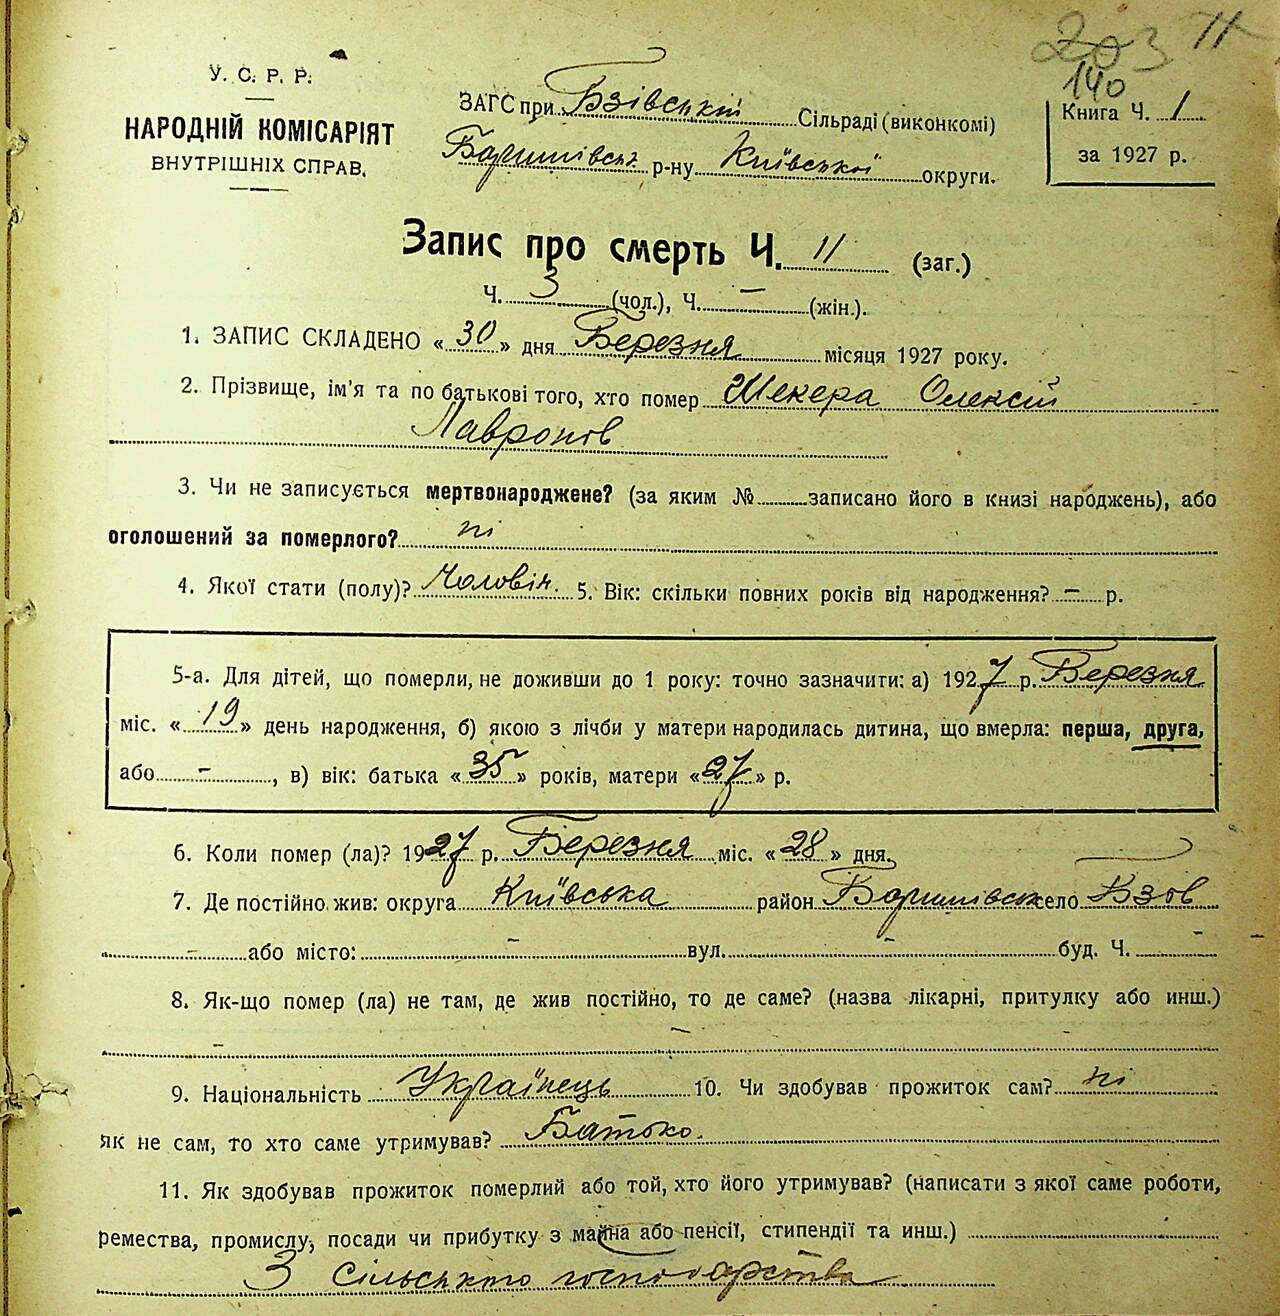 203 11
140
У. С. Р. Р.
НАРОДНІЙ КОМІСАРІЯТ
ВНУТРІШНІХ СПРАВ.
ЗАГС при Бзівській Сільраді (виконкомі)
Баришівськ. р-ну Київської округи.
Книга Ч. 1
за 1927 р.
Запис про смерть Ч. 11 (заг.)
Ч. 3 (чол.), Ч. – (жін.).
1. ЗАПИС СКЛАДЕНО « 30 » дня Березня місяця 1927 року.
2. Прізвище, ім'я та по батькові того, хто помер Шекера Олексій
Лавронов
3. Чи не записується мертвонароджене? (за яким № записано його в книзі народжень), або
оголошений за померлого? ні
4. Якої стати (полу)? Чоловіч. 5. Вік: скільки повних років від народження? – р.
5-а. Для дітей, що померли, не доживши до 1 року: точно зазначити: а) 1927 р. Березня
міс. « 19 » день народження, б) якою з лічби у матери народилась дитина, що вмерла: перша, друга,
або – , в) вік: батька « 35 » років, матери « 27 » р.
6. Коли помер (ла)? 1927 р. Березня міс. « 28 » дня.
7. Де постійно жив: округа Київська район Баришівськ село Бзов
– або місто: – вул. – буд. Ч. –
8. Як-що помер (ла) не там, де жив постійно, то де саме? (назва лікарні, притулку або инш.)
– –
9. Національність Українець 10. Чи здобував прожиток сам? ні
як не сам, то хто саме утримував? Батько.
11. Як здобував прожиток померлий або той, хто його утримував? (написати з якої саме роботи,
ремества, промислу, посади чи прибутку з майна або пенсії, стипендії та инш.)
З сільського господарства